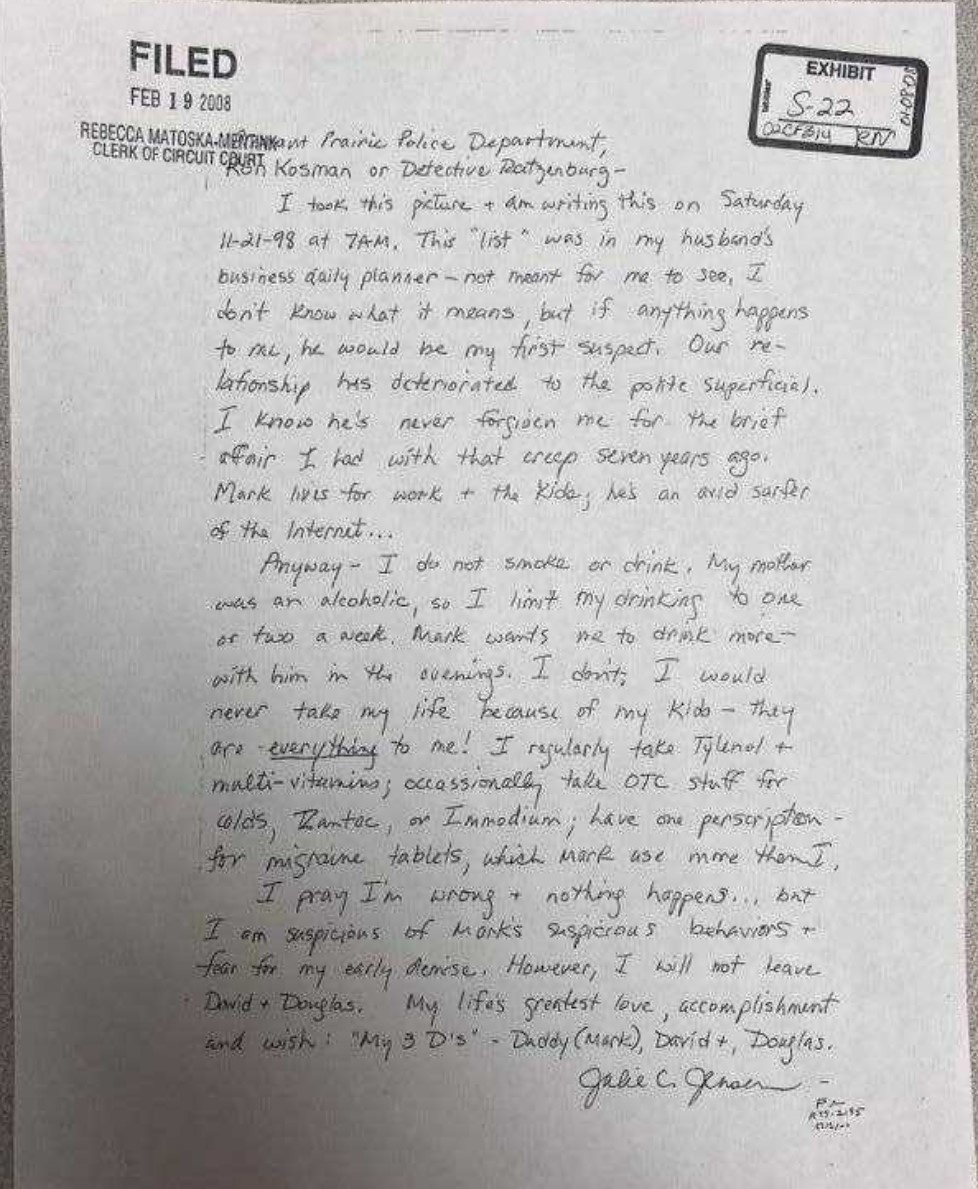 FILED
FEB 19 2008
REBECCA MATOSKA-MENTINK
CLERK OF CIRCUIT COURT
EXHIBIT
S-22
02CF314 RN
Prairie Police Department,
Ron Kosman or Detective Ratzenburg-
I took this picture + am writing this on Saturday
11-21-98 at 7AM. This "list" was in my husband's
business daily planner - not meant for me to see, I
don't know what it means, but if anything happens
to me, he would be my first suspect. Our re-
lationship has deteriorated to the polite superficial.
I know he's never forgiven me for the brief
affair I had with that creep seven years ago.
Mark lives for work + the kids; he's an avid surfer
of the Internet...
Anyway - I do not smoke or drink. My mother
was an alcoholic, so I limit my drinking to one
or two a week. Mark wants me to drink more-
with him in the evenings. I don't; I would
never take my life because of my kids - they
are everything to me! I regularly take Tylenol +
multi-vitamins; occassionally take OTC stuff for
colds, Zantac, or Immodium; have one perscription -
for migraine tablets, which Mark use more than I.
I pray I'm wrong + nothing happens... but
I am suspicious of Mark's suspicious behaviors +
fear for my early demise. However, I will not leave
David + Douglas. My life's greatest love, accomplishment
and wish: "My 3 D's" - Daddy (Mark), David +, Douglas.
Julie C. Jensen